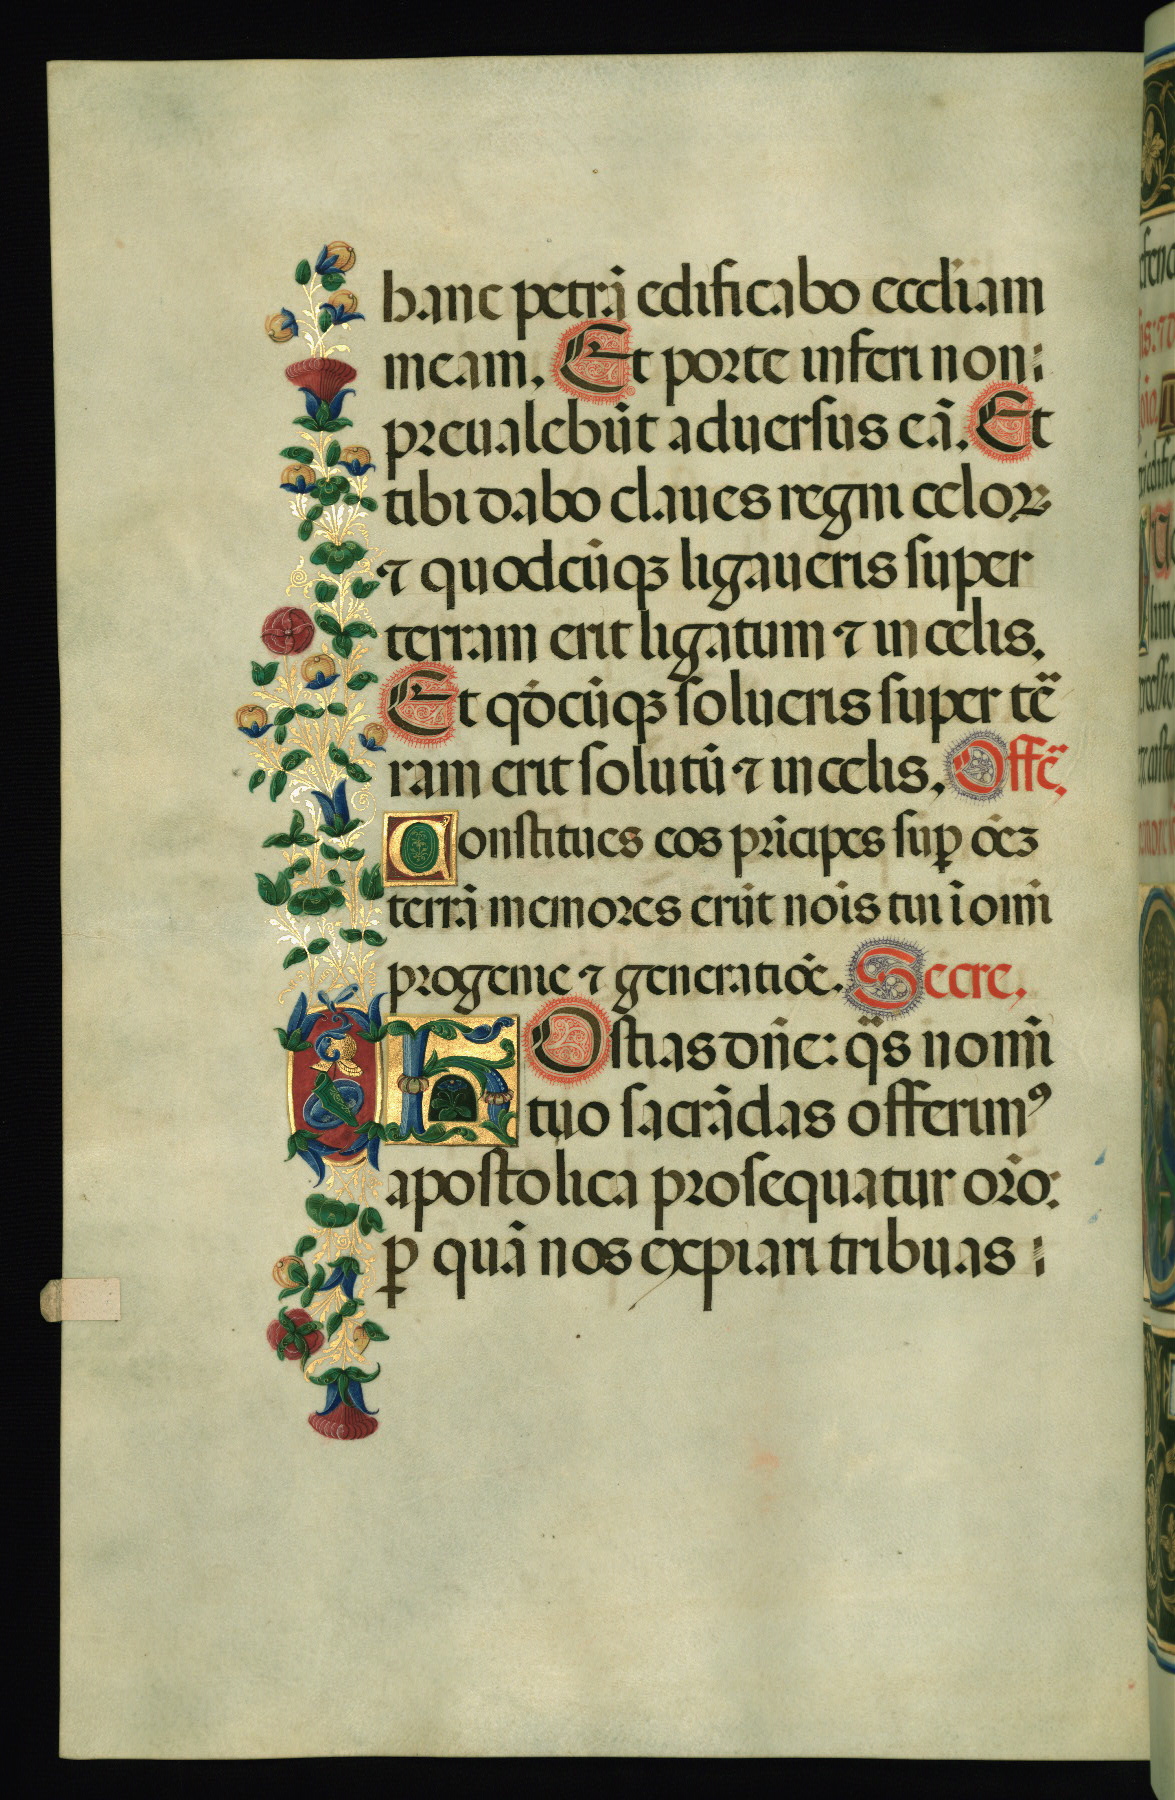 hanc petrã edificabo eccłiam
meam. Et porte inferi non:
preualebũt aduersus eã. Et
tibi dabo claues regni celoꝝ
⁊ quodcũqꝫ ligaueris super
terram erit ligatum ⁊ in celis.
Et qdcũqꝫ solueris super ter̃
ram erit solutũ ⁊ in celis. Offẽ.
Constitues eos prĩcipes suꝑ oẽꝫ
terrã memores erũt nois tui ĩ omi
progenie ⁊ generatiõe. Secre.
hOstias dñe: q̃s nomĩ
tuo sacrãdas offerimꝰ
apostolica prosequatur orõ:
ꝑ quã nos expiari tribuas :